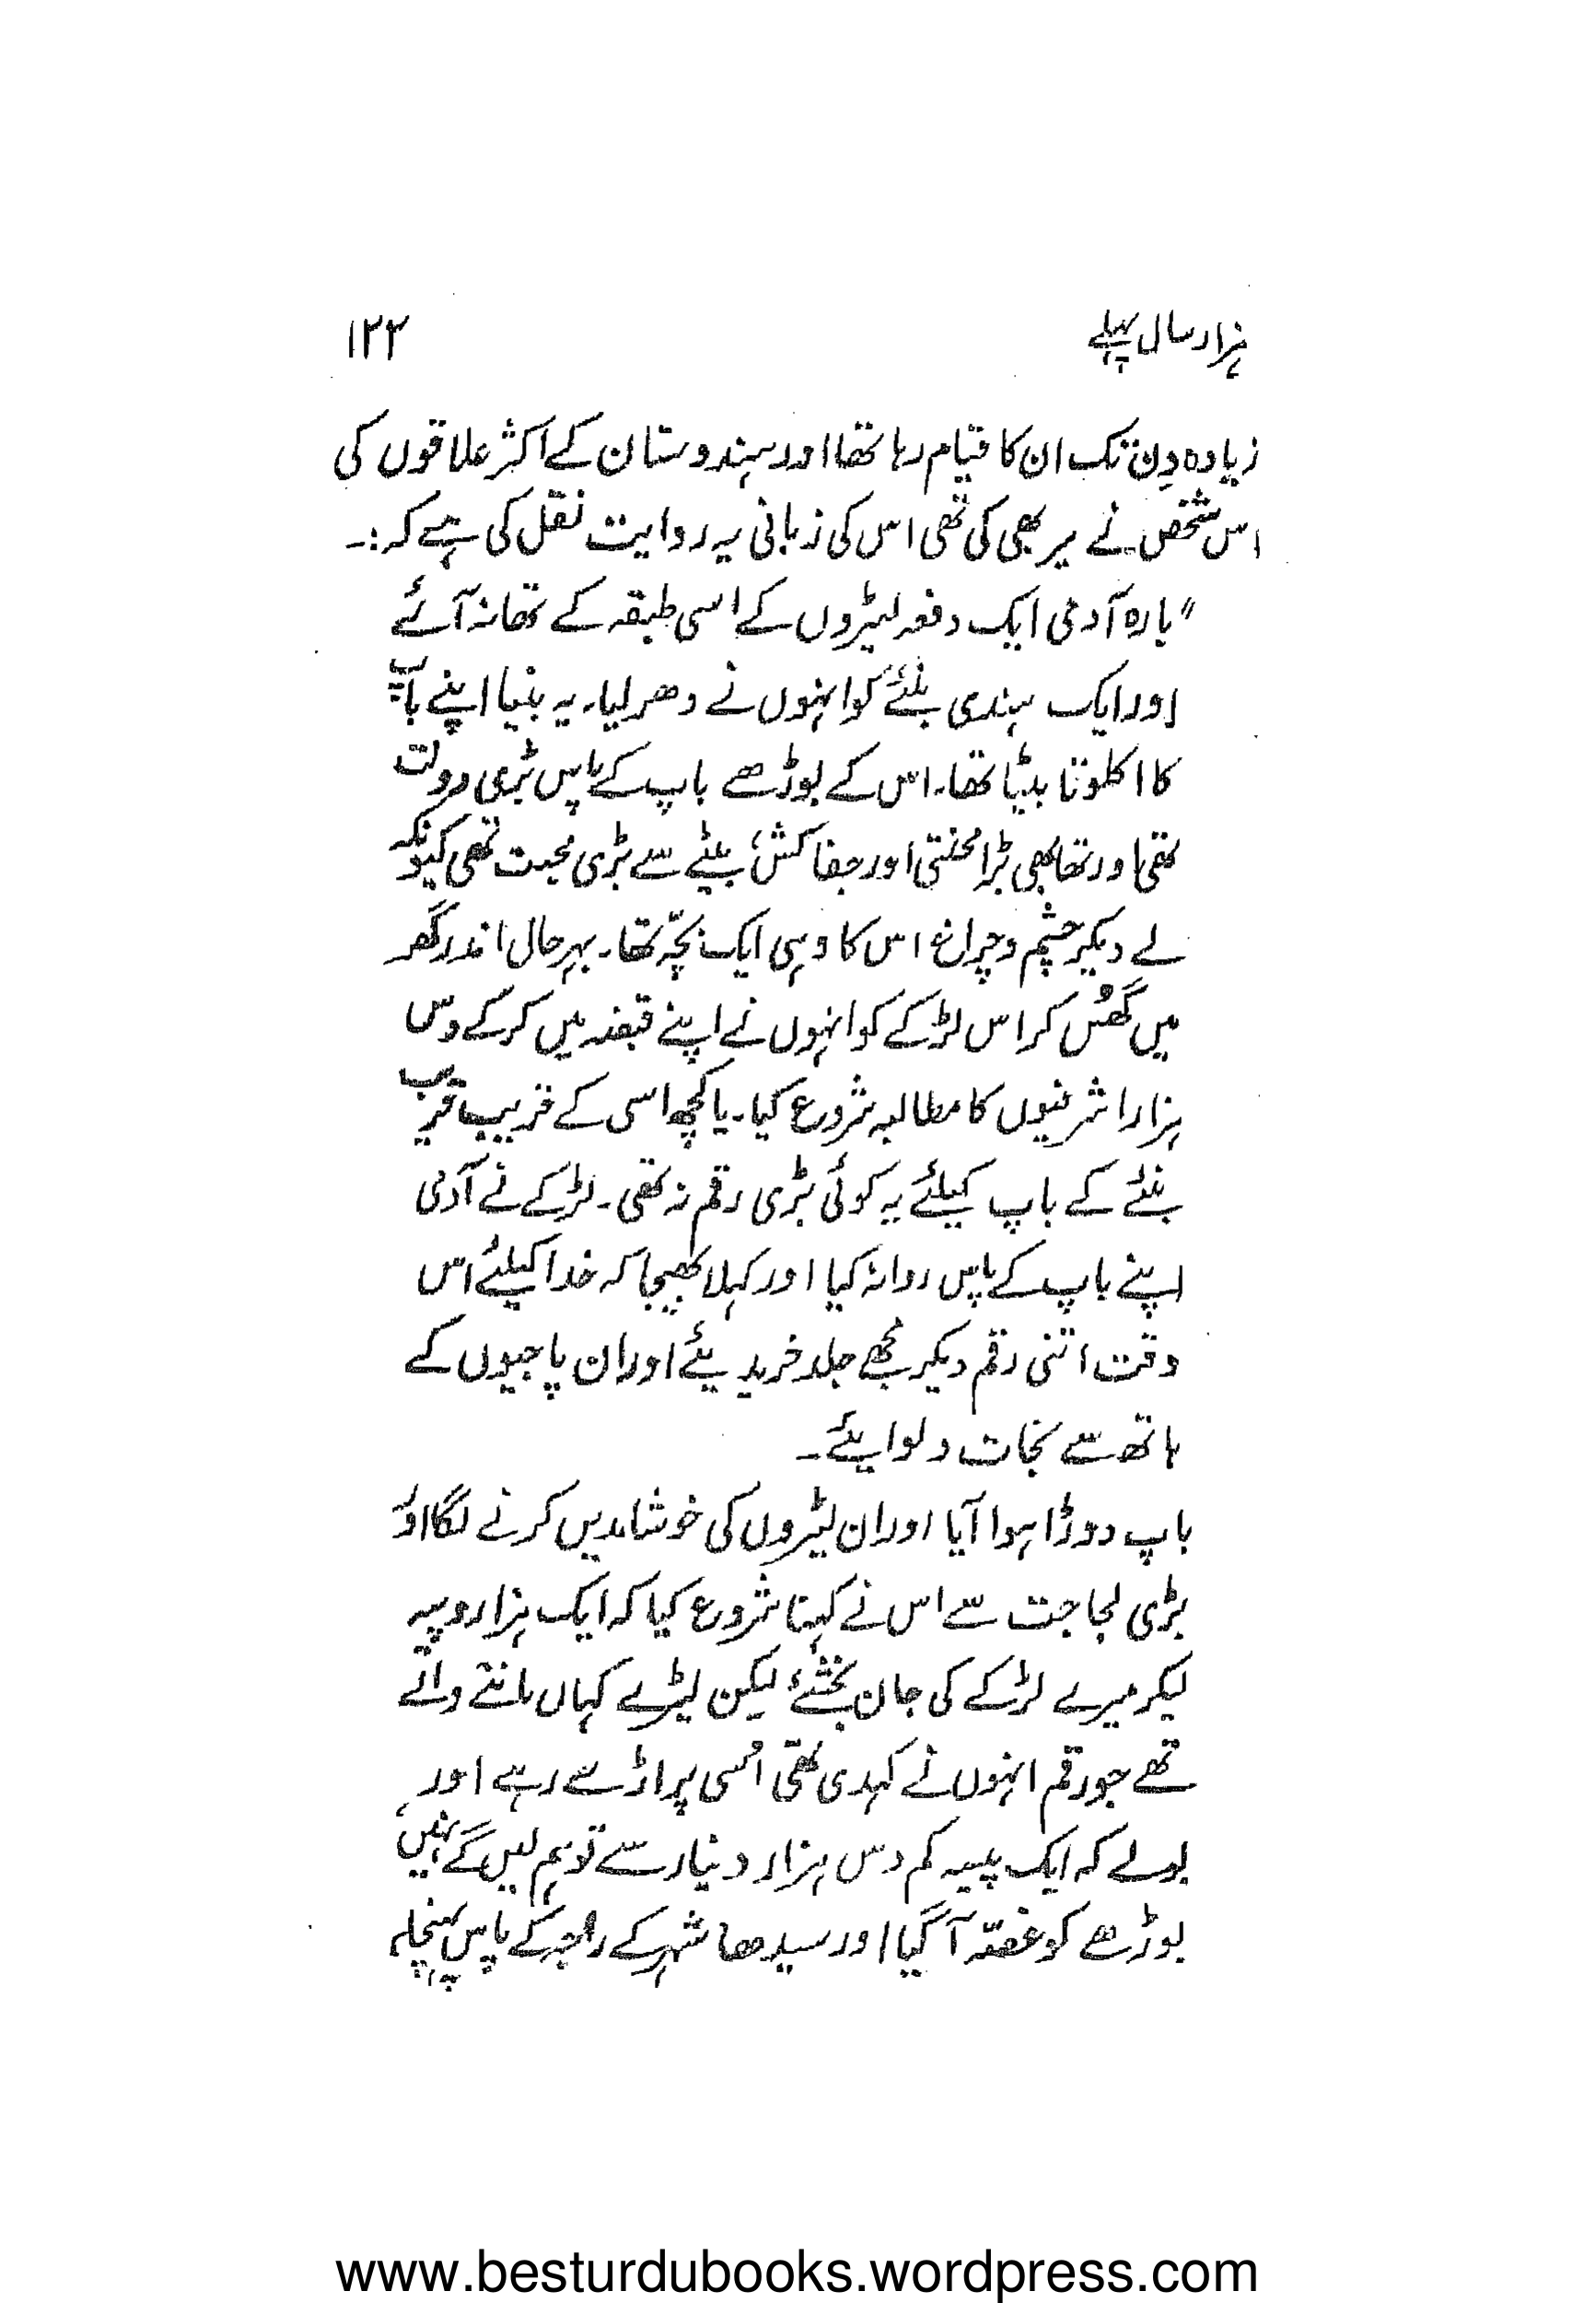 ہزار سال پہلے
۱۲۳
زیادہ دِن تک ان کا قیام رہا تھا اور ہندوستان کے اکثر علاقوں کی
اس شخص نے سیر بھی کی تھی اس کی زبانی یہ روایت نقل کی ہے کہ :۔
"بارہ آدمی ایک دفعہ لیٹروں کے اسی طبقہ کے تھانہ آئے
اور ایک ہندی بنئے کو انہوں نے دھر لیا۔ یہ بنیا اپنے باپ
کا اکلوتا بیٹا تھا۔ اس کے بوڑھے باپ کے پاس بڑی دولت
تھی اور تھا بھی بڑا محنتی اور جفا کش، بیٹے سے بڑی محبت تھی کیونکہ
لے دیکر چشم و چراغ اس کا وہی ایک بچّہ تھا۔ بہر حال اندر گھر
میں گھُس کر اس لڑکے کو انہوں نے اپنے قبضہ میں کر کے دس
ہزار اشرفیوں کا مطالبہ شروع کیا۔ یا کچھ اسی کے قریب قریب
بنئے کے باپ کیلئے یہ کوئی بڑی رقم نہ تھی۔ لڑکے نے آدمی
اپنے باپ کے پاس روانہ کیا اور کہلا بھیجا کہ خدا کیلئے اس
وقت اتنی رقم دیکر مجھے جلد خریدیئے اور ان پاجیوں کے
ہاتھ سے نجات دلوایئے۔
باپ دوڑا ہوا آیا اور ان لیٹروں کی خوشامدیں کرنے لگا اور
بڑی لجاجت سے اس نے کہنا شروع کیا کہ ایک ہزار روپیہ
لیکر میرے لڑکے کی جان بخشئے لیکن لیٹرے کہاں ماننے والے
تھے جو رقم انہوں نے کہدی تھی اُسی پر اڑے رہے اور
بولے کہ ایک پیسہ کم دس ہزار دینار سے تو ہم لیں گے نہیں،
بوڑھے کو غصّہ آ گیا اور سیدھا شہر کے راجہ کے پاس پہنچا۔
www.besturdubooks.wordpress.com